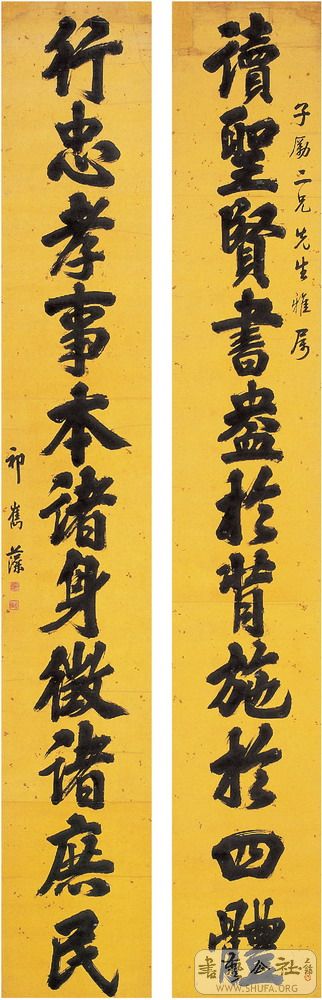 子勵二兄先生雅属
讀聖賢書盎於背施於四體
行忠孝事本諸身徵諸庶民
祁寯藻
書法公社
WWW.SHUFA.ORG